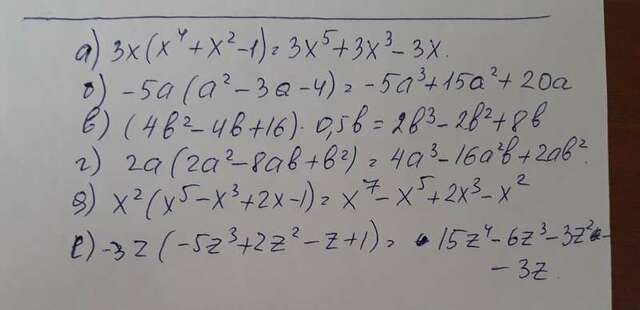 а) 3x(x⁴+x²-1)=3x⁵+3x³-3x.
б) -5a(a²-3a-4)=-5a³+15a²+20a
в) (4b²-4b+16)·0,5b=2b³-2b²+8b
г) 2a(2a²-8ab+b²)=4a³-16a²b+2ab².
д) x²(x⁵-x³+2x-1)=x⁷-x⁵+2x³-x²
е) -3z(-5z³+2z²-z+1)= 15z⁴-6z³-3z²-
-3z.